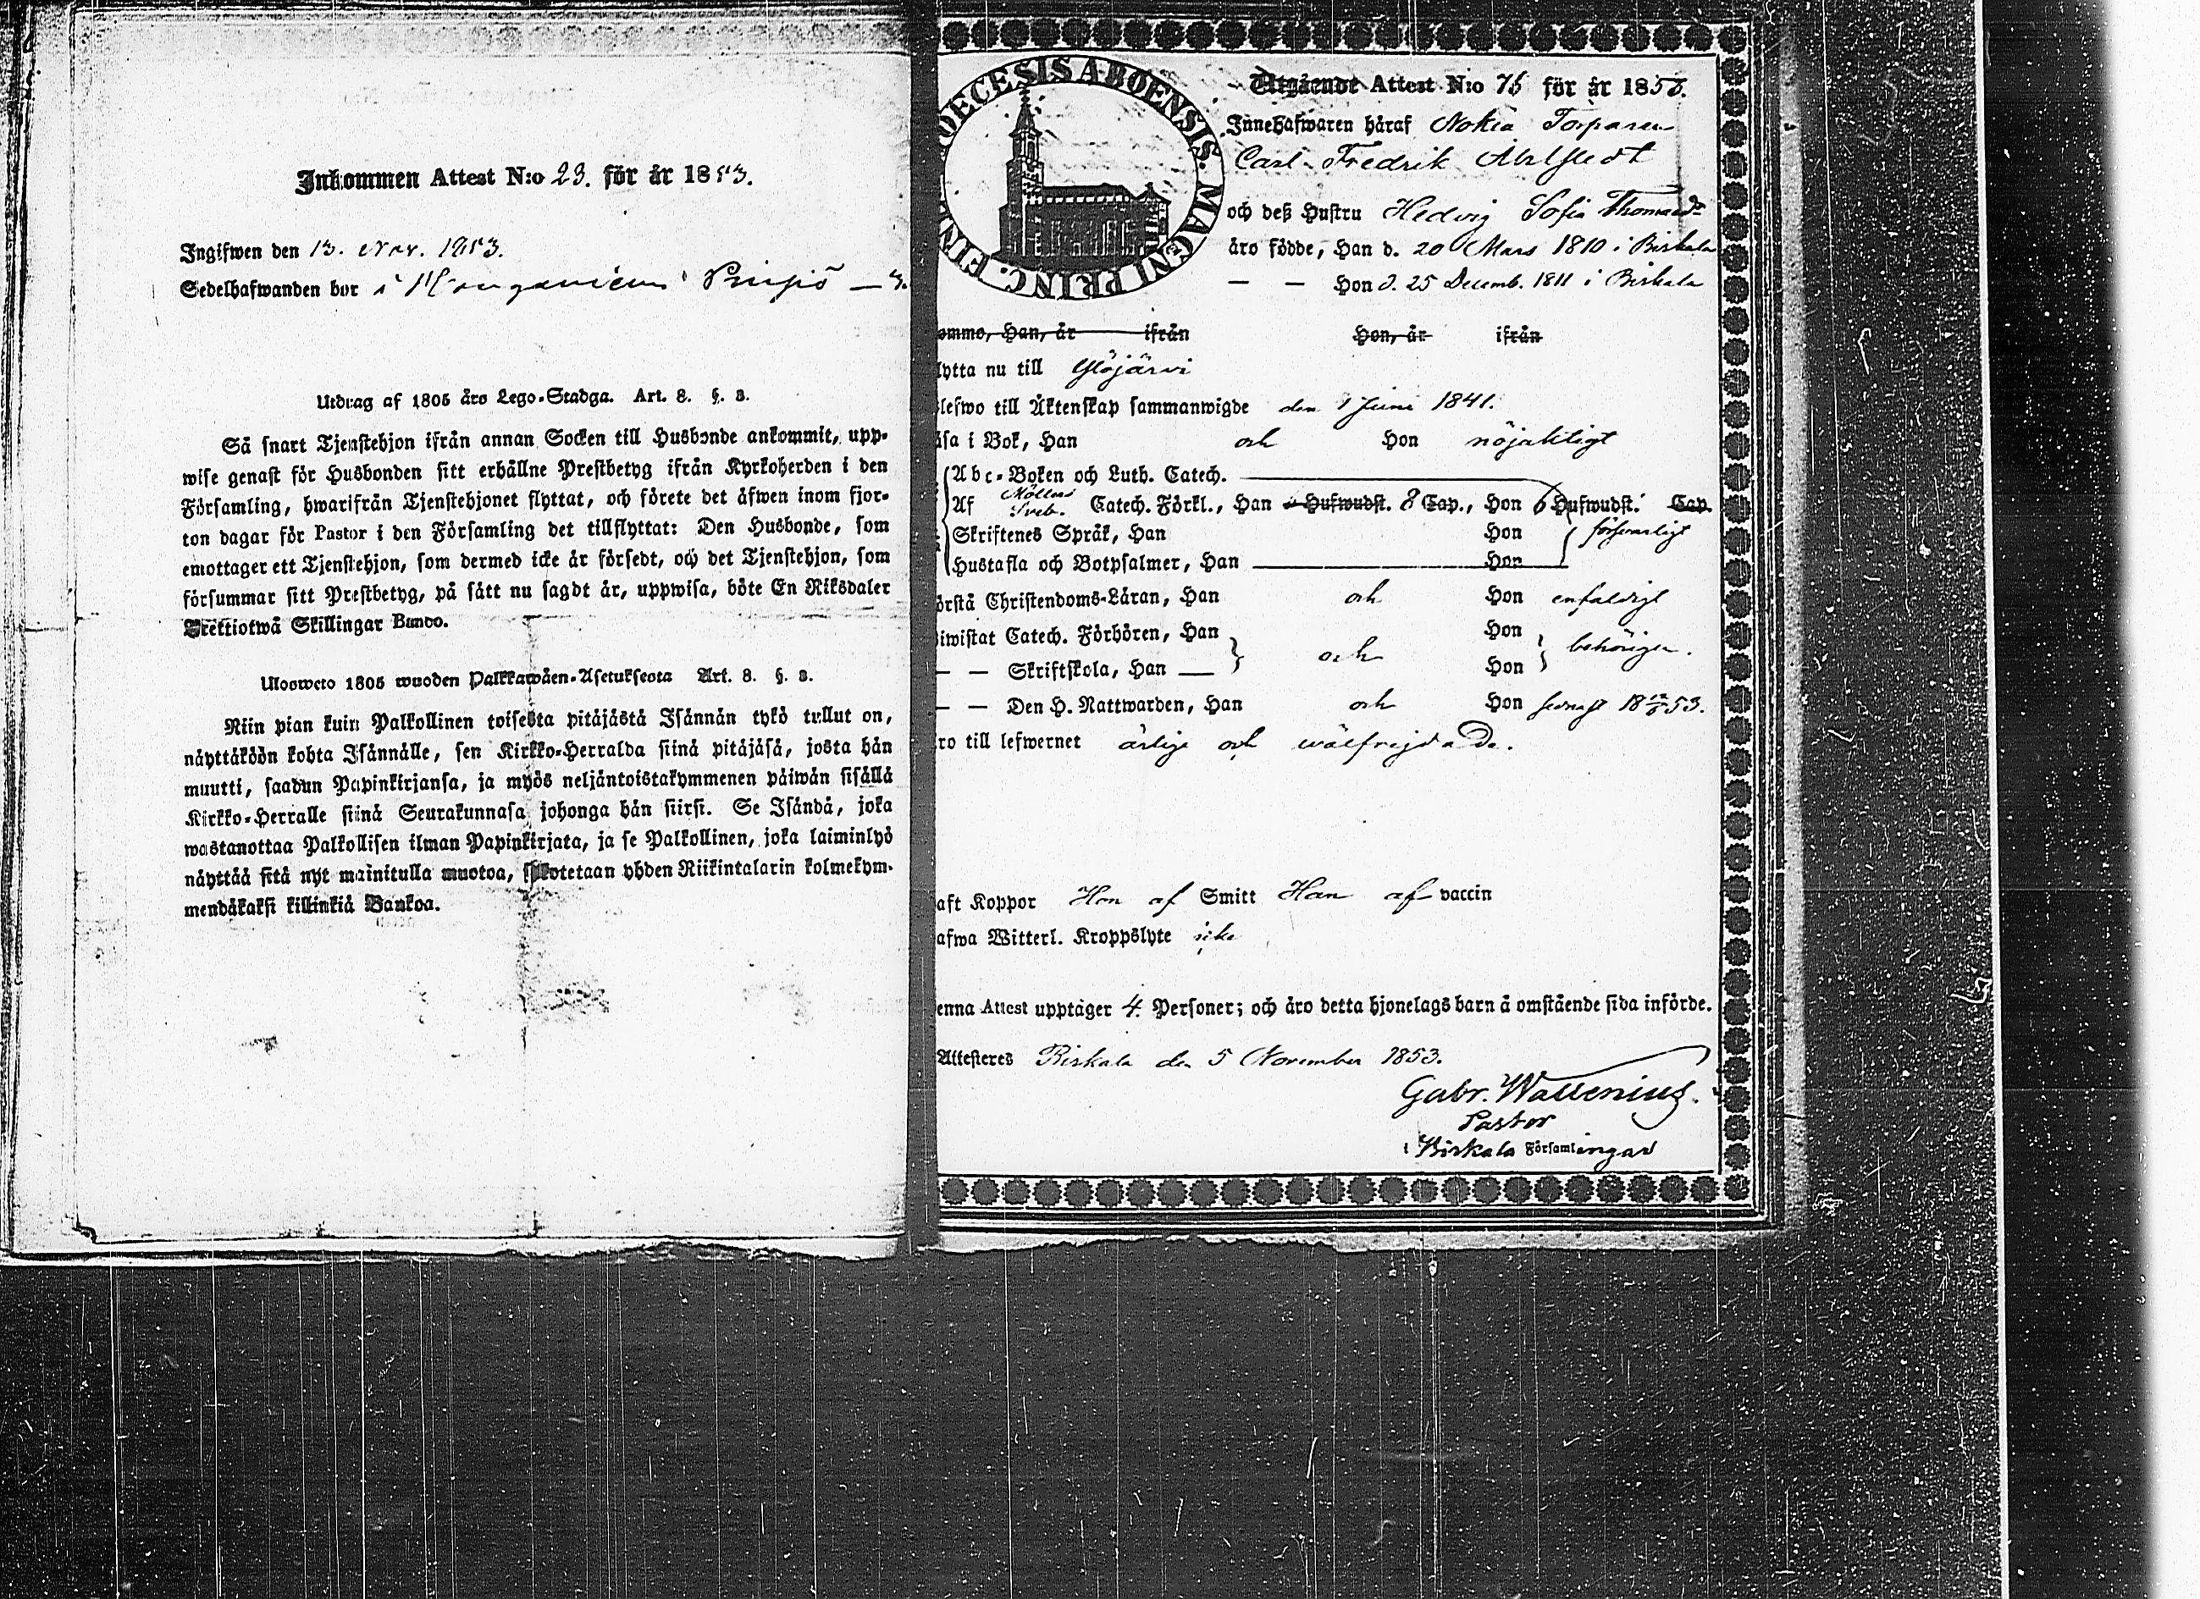 Inkommen Attest N:o 23. för år 1853.
Ingifwen den 13. Nov. 1853.
Sedelhafwanden bor i
Utdrag af 1805 års Lego-Stadga. Art. 8. §. 3.
Så snart Tjenstehjon ifrån annan Socken till Husbonde ankommit, upp-
wise genast för Husbonden sitt erhållne Prestbetyg ifrån Kyrkoherden i den
Församling, hwarifrån Tjenstehjonet flyttat, och förete det äfwen inom fjor-
ton dagar för Pastor i den Församling det tillflyttat: Den Husbonde, som
emottager ett Tjenstehjon, som dermed icke är försedt, och det Tjenstehjon, som
försummar sitt Prestbetyg, på sätt nu sagdt är, uppwisa, böte En Riksdaler
Trettiotwå Skillingar Banco.
Ulosweto 1805 wuoden Palkkawäen-Asetuksesta Art. 8. §. 3.
Niin pian kuin Palkollinen toisesta pitäjästä Isännän tykö tullut on,
näyttäköön kohta Isännälle, sen Kirkko-Herralda siinä pitäjäsä, josta hän
muutti, saadun Papinkirjansa, ja myös neljäntoistakymmenen päiwän sisällä
Kirkko-Herralle siinä Seurakunnasa johonga hän siirsi. Se Isändä, joka
wastanottaa Palkollisen ilman Papinkirjata, ja se Palkollinen, joka laiminlyö
näyttää sitä nyt mainitulla muotoa, sakotetaan yhden Riikintalarin kolmekym-
mendäkaksi killinkiä Bankoa.
OECESIS ABOENSIS. MAGNI PRINC. FIN
Utgående Attest N:o 75 för år 1853.
Innehafwaren häraf Nokia Torparen
Carl Fredrik Ahlstedt
och deß Hustru Hedvig Sofia Thomasd:r
äro födde, Han d. 20 Mars 1810 i Birkala
— — Hon d. 25 Decemb. 1811 i Birkala
ommo, Han, år ifrån Hon, år ifrån
lytta nu till Ylöjärvi
lefwo till Äktenskap sammanwigde den 1 Juni 1841.
äsa i Bok, Han och Hon nöjaktigt
Abc-Boken och Luth. Catech.
Af Möllers Sveb. Catech. Förkl., Han Hufwudst. 8 Cap., Hon 6 Hufwudst. Cap.
Skriftenes Språk, Han Hon försvarligt
Hustafla och Botpsalmer, Han Hon
örstå Christendoms-Läran, Han och Hon enfaldigt
iwistat Catech. Förhören, Han Hon
— — Skriftskola, Han och Hon behörigen.
— — Den H. Nattwarden, Han och Hon sednast 18 12/6 53.
ro till lefwernet ärlige och wälfrejdade.
aft Koppor Hon af Smitt Han af vaccin
afwa Witterl. Kroppslyte icke
enna Attest upptager 4. Personer; och äro detta hjonelags barn å omstående sida införde.
Attesteres Birkala den 5 November 1853.
Gabr. Wallenius.
Pastor
i Birkala Församlingar